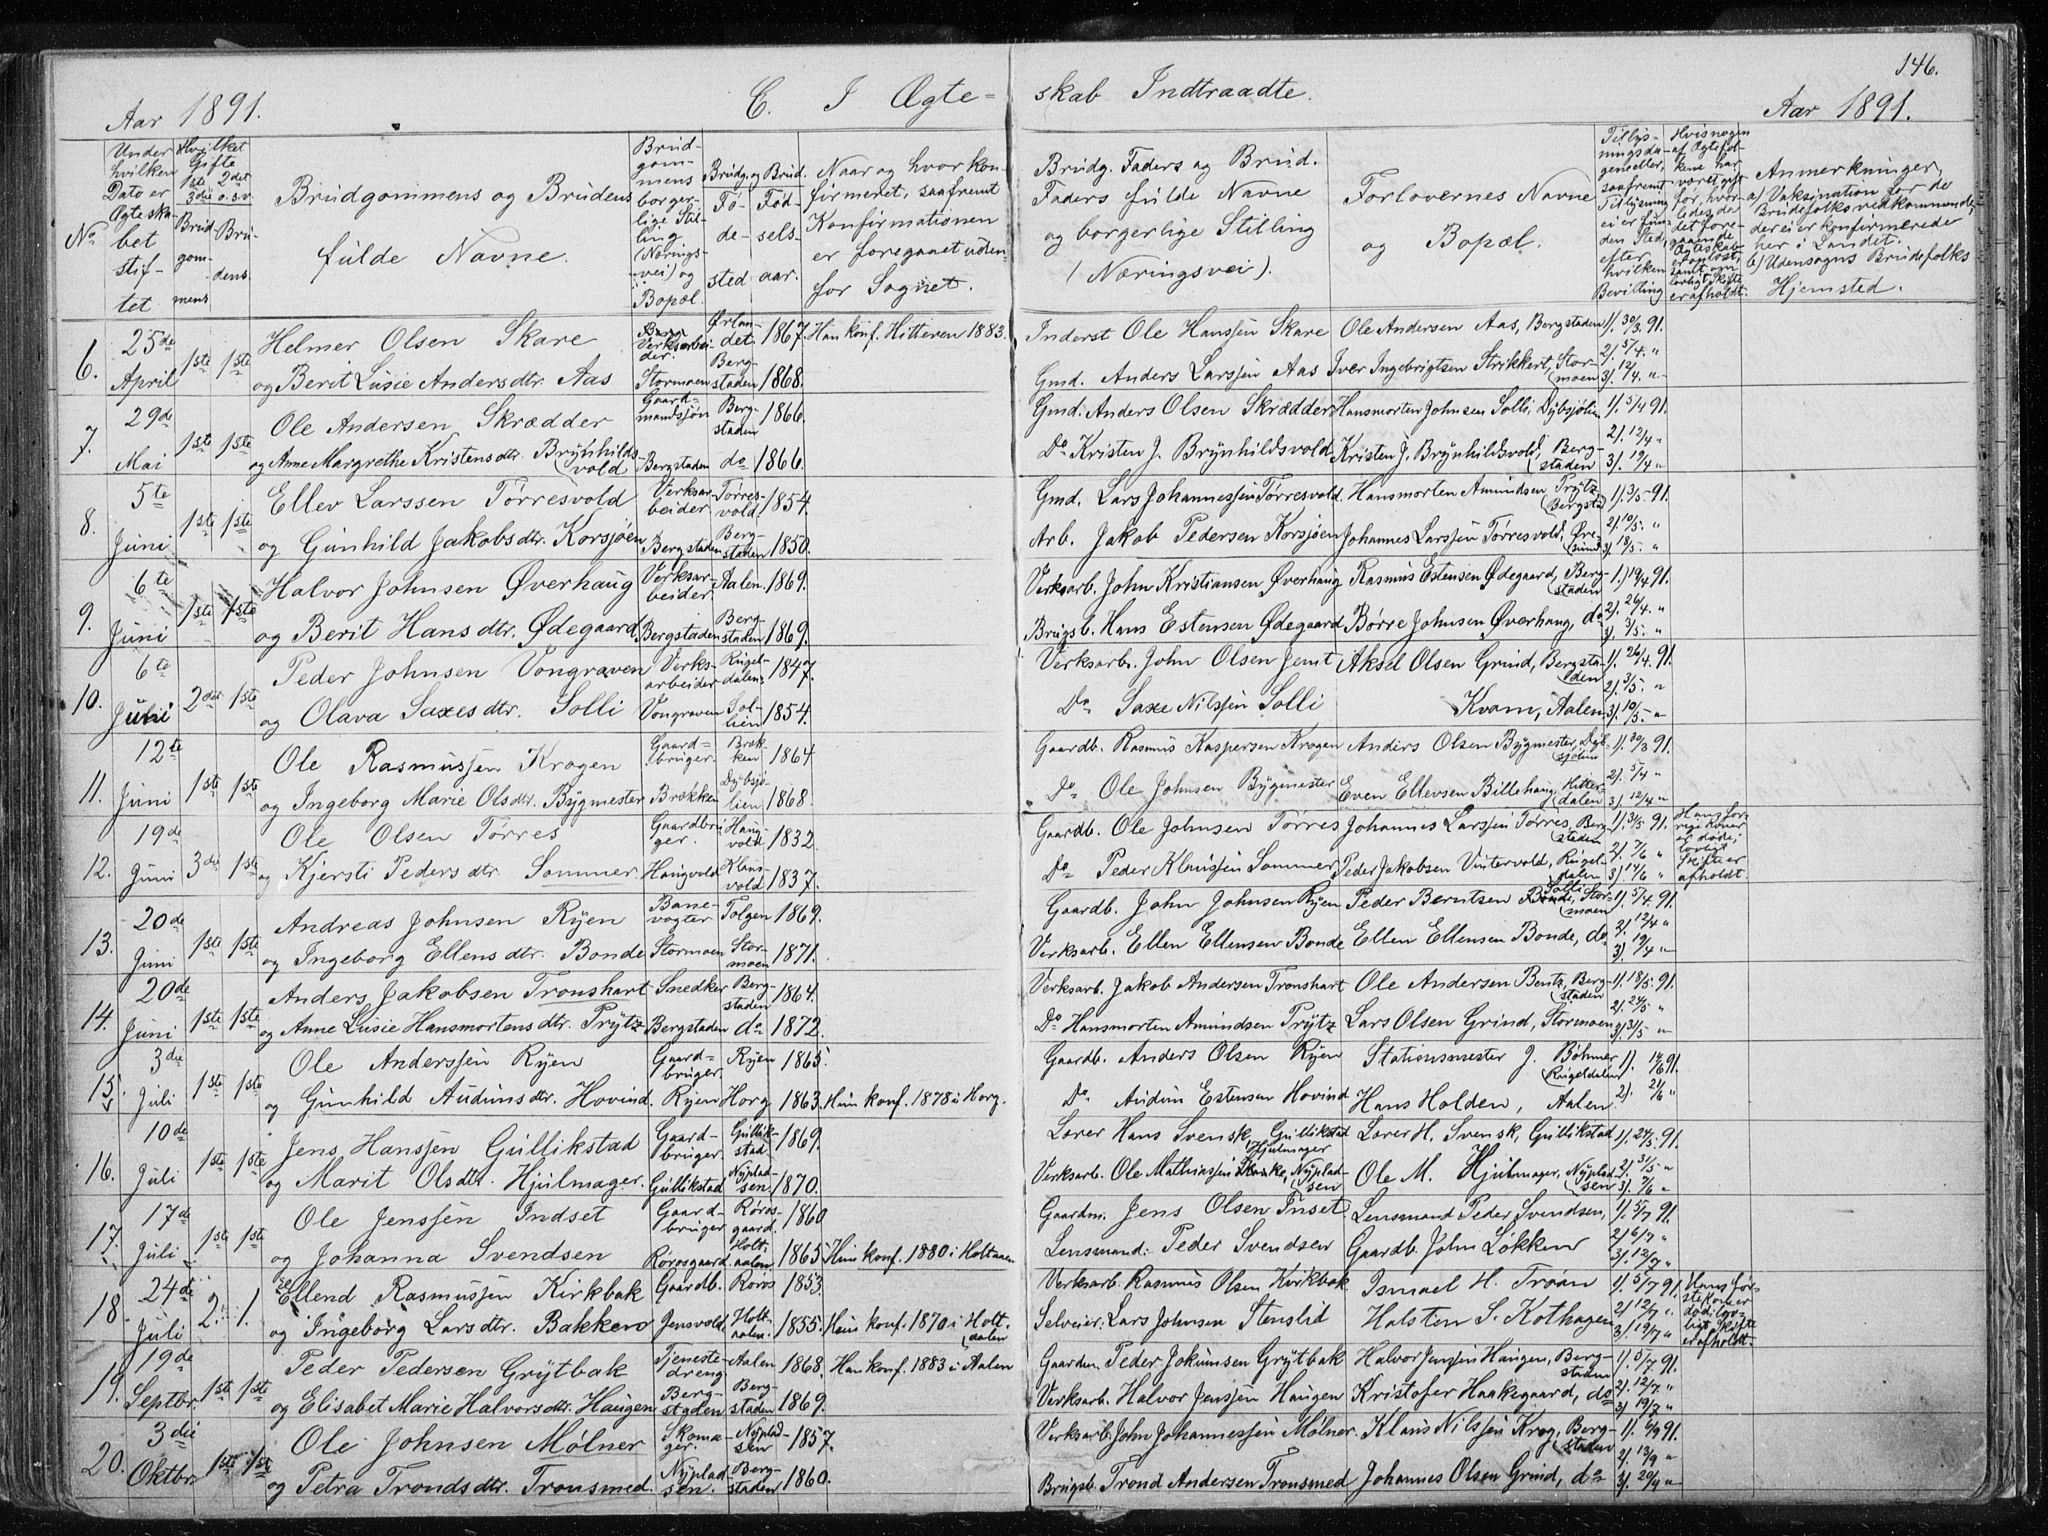 146.
Aar 1891. C. I Ægte- skab Indtraadte. Aar 1891.
No
Under hvilken Dato er Ægteskabet stiftet
Hvilket Gifte 1ste 2det 3die o.s.v.
Brudgommens Brudens
Brudgommens og Brudens fulde Navne.
Brudgommens borgerlige Stilling (Næringsvei) og Bopæl.
Brudg. og Brud. Fødested Fødselsaar.
Naar og hvor konfirmeret, saafremt Konfirmationen er foregaaet udenfor Sognet.
Brudg. Faders og Brud. Faders fulde Navne og borgerlige Stilling (Næringsvei).
Forlovernes Navne og Bopæl.
Tillysningsdagen eller, saafremt Tillysning ei er funden Sted, efter hvilken Bevilling
Hvis nogen af Ægtefolkene har været gift før, hvorledes da det foregaaende Ægteskab er opløst, samt om lovligt Skifte er afholdt.
Anmerkninger,
a) Vaksination for de Brudefolks vedkommende, der ei er konfirmerede her i Landet.
b) Udensogns Brudefolks Hjemsted.
6. 25de April 1ste 1ste Helmer Olsen Skare Verksarbeider. Ørlandet. 1867. Han konf. Hitteren 1883. Inderst Ole Hanssen Skare Ole Andersen Aas, Bergstaden 1). 30/3 91.
og Berit Lusie Andersdtr. Aas Stormoen Bergstaden 1868. Gmd. Anders Larssen Aas Iver Ingebrigtsen Strikkert, Stormoen 2). 5/4. " 3). 12/4. "
7. 29de Mai 1ste 1ste Ole Andersen Skrædder Gaardmandssøn Bergstaden 1866. Gmd. Anders Olsen Skrædder Hansmorten Johnsen Solli, Dybsjølien 1). 5/4 91.
og Anne Margrethe Kristensdtr. Brynhildsvold Bergstaden do 1866. Do Kristen J. Brynhildsvold Kristen J. Brynhildsvold, Bergstaden 2). 12/4 " 3). 19/4 "
8. 5te Juni 1ste 1ste Ellev Larssen Tørresvold Verksarbeider Tørresvold. 1854. Gmd. Lars Johannessen Tørresvold. Hansmorten Amundsen Trytz Bergsta 1). 3/5 91.
og Gunhild Jakobsdtr. Korsjøen Bergstaden Bergstaden 1850. Arb. Jakob Pedersen Korsjøen Johannes Larssen Tørresvold, Øresund 2). 10/5. " 3). 18/5. "
9. 6te Juni 1ste 1ste Halvor Johnsen Øverhaug Verksarbeider Aalen. 1869. Verksarb. John Kristiansen Øverhaug Rasmus Estensen Ødegaard, Bergstaden 1). 19/4 91.
og Berit Hansdtr. Ødegaard. Bergstaden Bergstaden 1869. Brugsb. Hans Estensen Ødegaard Børre Johnsen Øverhaug, do 2). 26/4. " 3). 3/5. "
10. 6te Juli 2det 1ste Peder Johnsen Vongraven Verksarbeider Rugeldalen. 1847. Verksarb. John Olsen Jemt Aksel Olsen Grind, Bergstaden 1). 26/4. 91.
og Olava Saxesdtr. Solli Vongraven Sollien 1854. Do Saxe Nilssen Solli Kvam, Aalen 2). 3/5. " 3). 10/5. "
11. 12te Juni 1ste 1ste Ole Rasmussen Krogen Gaardbruger. Brækken 1864 Gaardb. Rasmus Kaspersen Krogen Anders Olsen Bygmester, Dybsjølien 1). 30/3 91.
og Ingeborg Marie Olsdtr. Bygmester Brækken Dybsjølien 1868. Do Ole Johnsen Bygmester Even Ellevsen Billehaug, Hitterdalen 2). 5/4 " 3). 12/4 "
12. 19de Juni 3die 1ste Ole Olsen Tørres Gaardbruger. Haugvold 1832. Gaardb. Ole Johnsen Tørres Johannes Larssen Tørres, Bergstaden 1). 31/5 91. Hans forrige Koner er døde; lovligt Skifte er afholdt
og Kjersti Pedersdtr. Sommer. Haugvold Klausvold 1837. Do Peder Klaussen Sommer Peder Jakobsen Vintervold, Rugeldalen 2). 7/6 " 3). 14/6 "
13. 20de Juni 1ste 1ste Andreas Johnsen Ryen Banevogter Tolgen 1869. Gaardb. John Johnsen Ryen Peder Berntsen Solli, Stormoen 1). 5/4. 91.
og Ingeborg Ellensdtr. Bonde Stormoen Stormoen 1871. Verksarb. Ellen Ellensen Bonde Ellen Ellensen Bonde, do 2). 12/4 " 3). 19/4 "
14. 20de Juni 1ste 1ste Anders Jakobsen Tronshart Snedker Bergstaden 1864. Verksarb. Jakob Andersen Tronshart Ole Andersen Bentz, Bergstaden 1). 18/5. 91.
og Anne Lusie Hansmortensdtr. Trytz Bergstaden do 1872. Do Hansmorten Amundsen Trytz Lars Olsen Grind, Stormoen 2). 24/5 " 3). 31/5 "
15. 3die Juli 1ste 1ste Ole Anderssen Ryen Gaardbruger. Ryen 1865. Gaardb. Anders Olsen Ryen Stationsmester J. Bøhmer Rugeldalen 1). 14/6 91.
og Gunhild Audunsdtr. Hovind. Ryen Horg 1863. Hun konf. 1878 i Horg. Do Audun Estensen Hovind Hans Holden, Aalen 2). 21/6 "
16. 10de Juli 1ste 1ste Jens Hanssen Gullikstad Gaardbruger. Gullikstad 1869. Lærer Hans Svensk, Gullikstad Lærer H. Svensk, Gullikstad 1). 24/5. 91.
og Marit Olsdtr. Hjulmager. Gullikstad Nypladsen 1870. Verksarb. Ole Mathiassen Hjulmager, Nypladsen Ole M. Hjulmager, Nypladsen 2). 31/5 " 3). 7/6 "
17. 17de Juli 1ste 1ste Ole Jenssen Indset Gaardbruger Rørosgaard. 1860 Gaardm. Jens Olsen Inset Lensmand Peder Svendsen, 1). 5/7 91.
og Johanna Svendsen Rørosgaard Holtaalen. 1865 Hun konf. 1880 i Holtaalen Lensmand: Peder Svendsen Gaardb. John Løkken 2) 6/7 " 3). 12/7 "
18. 24de Juli 2. 1 Ellend Rasmussen Kirkbak Gaardb. Røros 1853. Verksarb. Rasmus Olsen Kirkbak Ismael H. Trøan 1). 5/7 91. Hans første Kone er død; lovligt Skifte er afholdt.
og Ingeborg Larsdtr. Bakken Jensvold Holtaalen. 1855. Hun konf. 1870 i Holtaalen Selveier: Lars Johnsen Stenslid Halsten S. Kothagen 2) 12/7 " 3). 19/7 "
19. 19de Septbr. 1ste 1ste Peder Pedersen Grytbak Tjenestedreng Aalen 1868. Han konf. 1883 i Aalen Gaardm. Peder Jokumsen Grytbak Halvor Jenssen Haugen, Bergstaden 1). 5/7 91.
og Elisabet Marie Halvorsdtr. Haugen Bergstaden Bergstaden 1869. Verksarb. Halvor Jenssen Haugen Kristofer Haakegaard, do 2). 12/7 " 3). 19/7 "
20. 3die Oktbr. 1ste 1ste Ole Johnsen Mølner Skomager. Nypladsen 1857. Verksarb. John Johannessen Mølner. Klaus Nilssen Krog, Bergstaden 1). 6/9 91.
og Petra Trondsdtr. Tronsmed. Nypladsen. Bergstaden 1860. Brugsb. Trond Andersen Tronsmed Johannes Olsen Grind, do 2). 13/9 " 3). 20/9 "